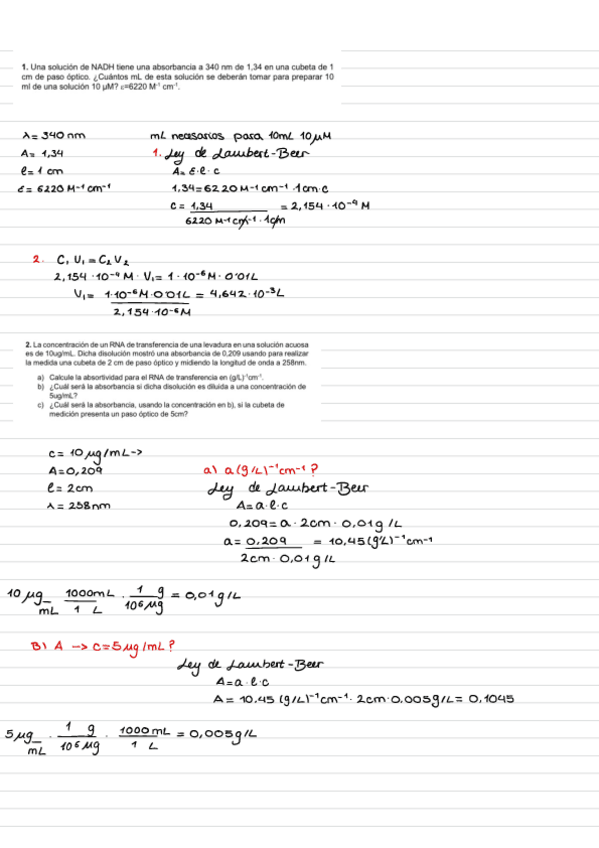 1. Una solución de NADH tiene una absorbancia a 340 nm de 1,34 en una cubeta de 1
cm de paso óptico. ¿Cuántos mL de esta solución se deberán tomar para preparar 10
ml de una solución 10 µM? ε=6220 M⁻¹ cm⁻¹.
λ= 340 nm
A= 1,34
l= 1 cm
ε= 6220 M⁻¹ cm⁻¹
mL necesarios para 10mL 10µM
1. Ley de Lambert-Beer
A= ε·l·c
1,34=6220 M⁻¹cm⁻¹ · 1cm·c
c = 1,34 / 6220 M⁻¹cm⁻¹ · 1cm = 2,154·10⁻⁴ M
2. C₁ V₁ = C₂ V₂
2,154·10⁻⁴ M · V₁ = 1·10⁻⁶ M · 0'01L
V₁ = 1·10⁻⁶M·0'01L / 2,154·10⁻⁶M = 4,642·10⁻³L
2. La concentración de un RNA de transferencia de una levadura en una solución acuosa
es de 10ug/mL. Dicha disolución mostró una absorbancia de 0,209 usando para realizar
la medida una cubeta de 2 cm de paso óptico y midiendo la longitud de onda a 258nm.
a) Calcule la absortividad para el RNA de transferencia en (g/L)⁻¹cm⁻¹.
b) ¿Cuál será la absorbancia si dicha disolución es diluida a una concentración de
5ug/mL?
c) ¿Cuál será la absorbancia, usando la concentración en b), si la cubeta de
medición presenta un paso óptico de 5cm?
c= 10 µg/mL->
A=0,209
l= 2cm
λ= 258nm
a) a(g/L)⁻¹cm⁻¹?
Ley de Lambert-Beer
A=a·l·c
0,209=a · 2cm · 0,01g/L
a= 0,209 / 2cm·0,01g/L = 10,45(g/L)⁻¹cm⁻¹
10 µg/mL · 1000mL/1 L · 1 g/10⁶ µg = 0,01g/L
B) A -> c=5µg/mL?
Ley de Lambert-Beer
A=a·l·c
A= 10,45 (g/L)⁻¹cm⁻¹· 2cm·0,005g/L= 0,1045
5µg/mL · 1 g/10⁶ µg · 1000 mL/1 L = 0,005g/L